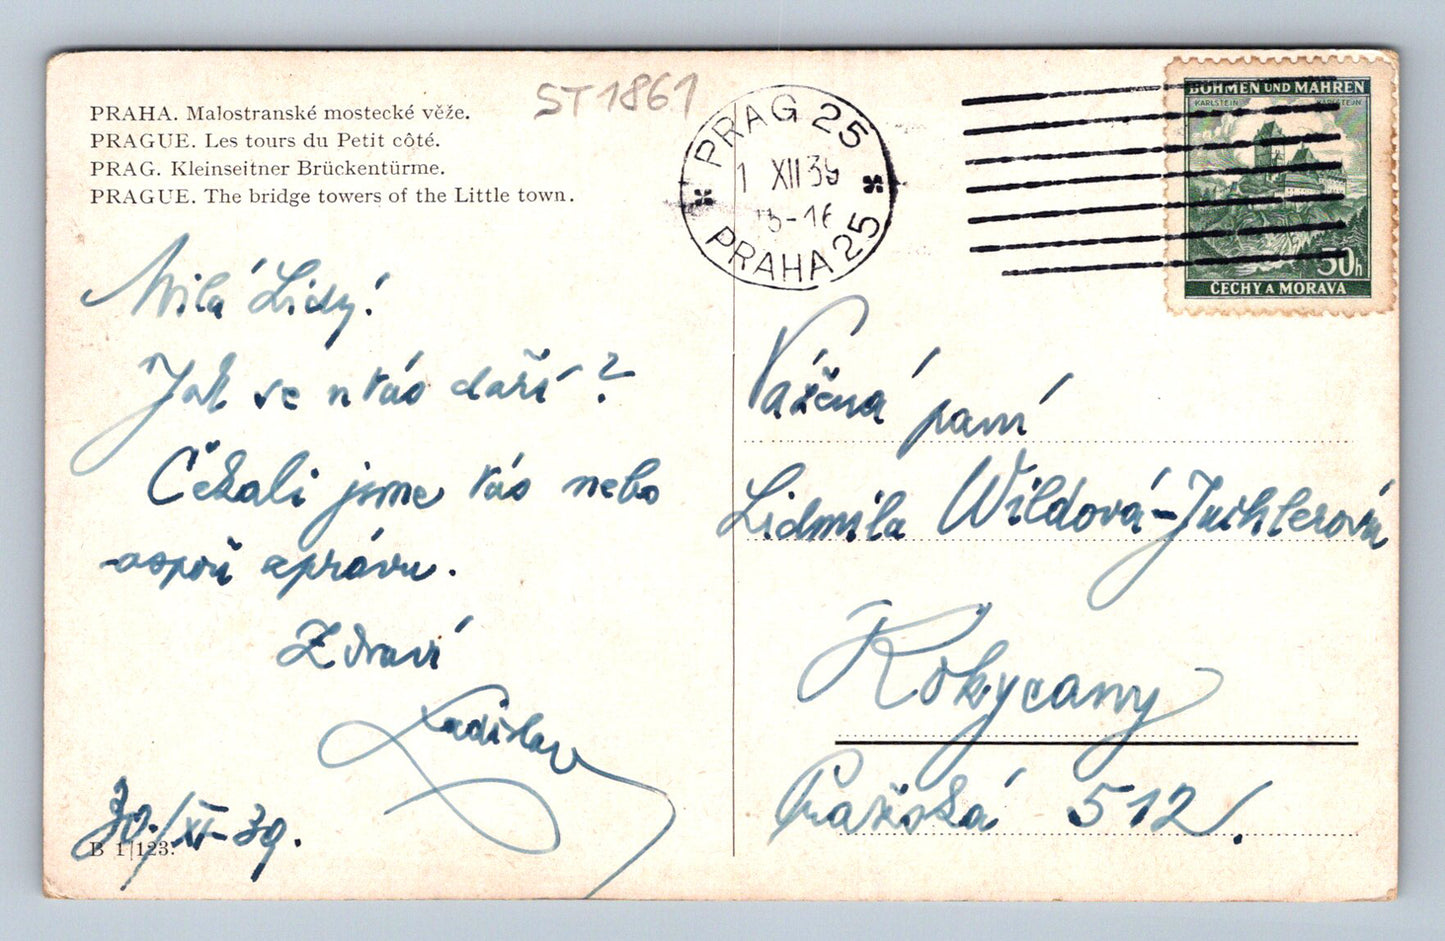 PRAHA. Malostranské mostecké věže.
PRAGUE. Les tours du Petit côté.
PRAG. Kleinseitner Brückentürme.
PRAGUE. The bridge towers of the Little town.
ST1861
PRAG 25
1 XII 39
-16
PRAHA 25
BÖHMEN UND MÄHREN
KARLSTEIN KARLŠTEJN
50h
ČECHY A MORAVA
Milá Lidy!
Jak se u Vás daří?
Čekali jsme Vás nebo
aspoň zprávu.
Zdraví
Ladislav
30./XI-39.
B 1/123.
Vážená paní
Lidmila Wildová-Juchlerová
Rokycany
Pražská 512.